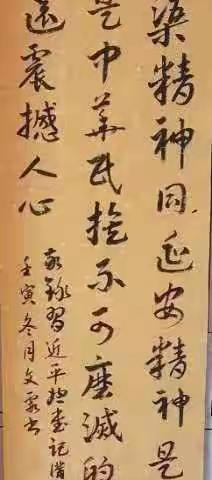 渠精神同延安精神是
是中华民族不可磨灭的
远震撼人心
敬录习近平总书记语
壬寅冬月文霞书